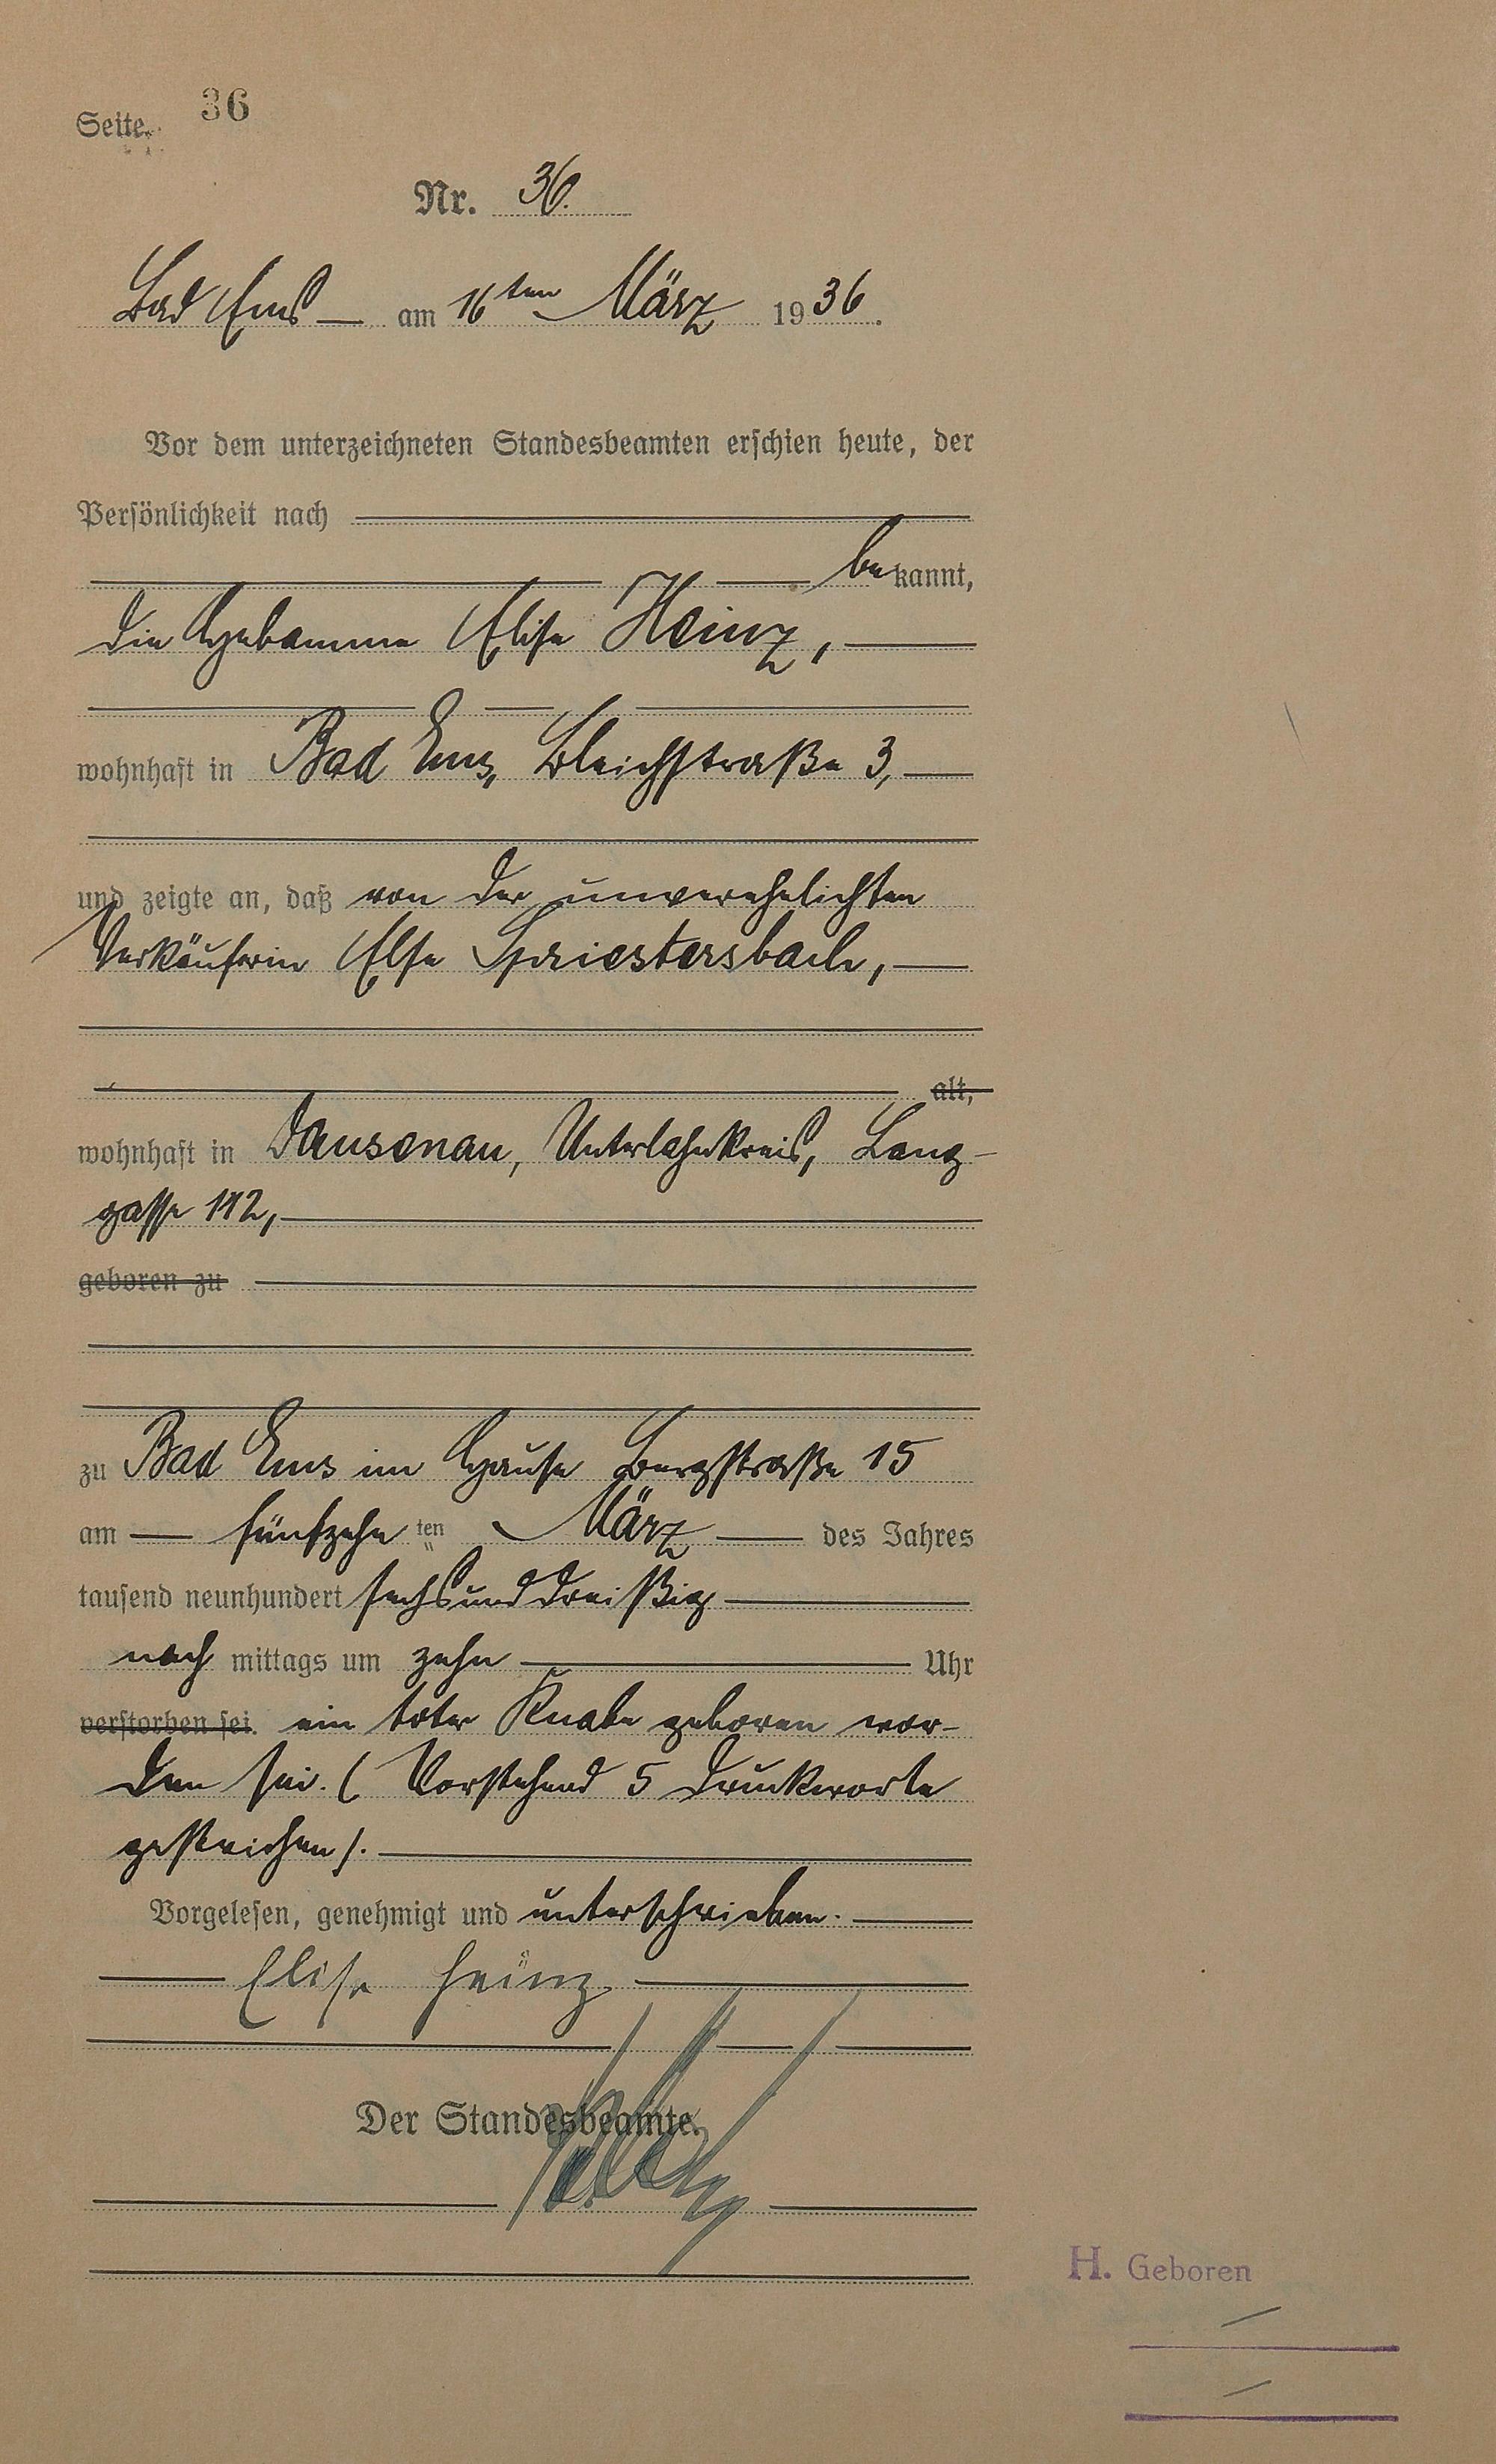 Seite. 36
Nr. 36.
Bad Ems am 16ten März 1936.
Vor dem unterzeichneten Standesbeamten erschien heute, der
Persönlichkeit nach
bekannt,
die Hebamme Elise Heinz,
wohnhaft in Bad Ems, Bleichstraße 3,
und zeigte an, daß von der unverehelichten
Verkäuferin Else Spriestersbach,
alt,
wohnhaft in Dausenau, Unterlahnkreis, Lang-
gasse 112,
geboren zu
zu Bad Ems im Hause Bergstraße 15
am fünfzehnten März des Jahres
tausend neunhundert sechsunddreißig
nachmittags um zehn Uhr
verstorben sei. ein toter Knabe geboren wor-
den sei. (Vorstehend 5 Druckworte
gestrichen).
Vorgelesen, genehmigt und unterschrieben.
Elise Heinz
Der Standesbeamte.
H. Geboren